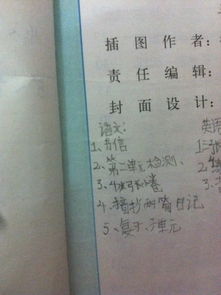 插图作者:
责任编辑:
封面设计:
语文: 英语
1、书信 1、
2、第二单元检测、 2、
3、卷
4、摘抄两篇日记
5、复习二单元